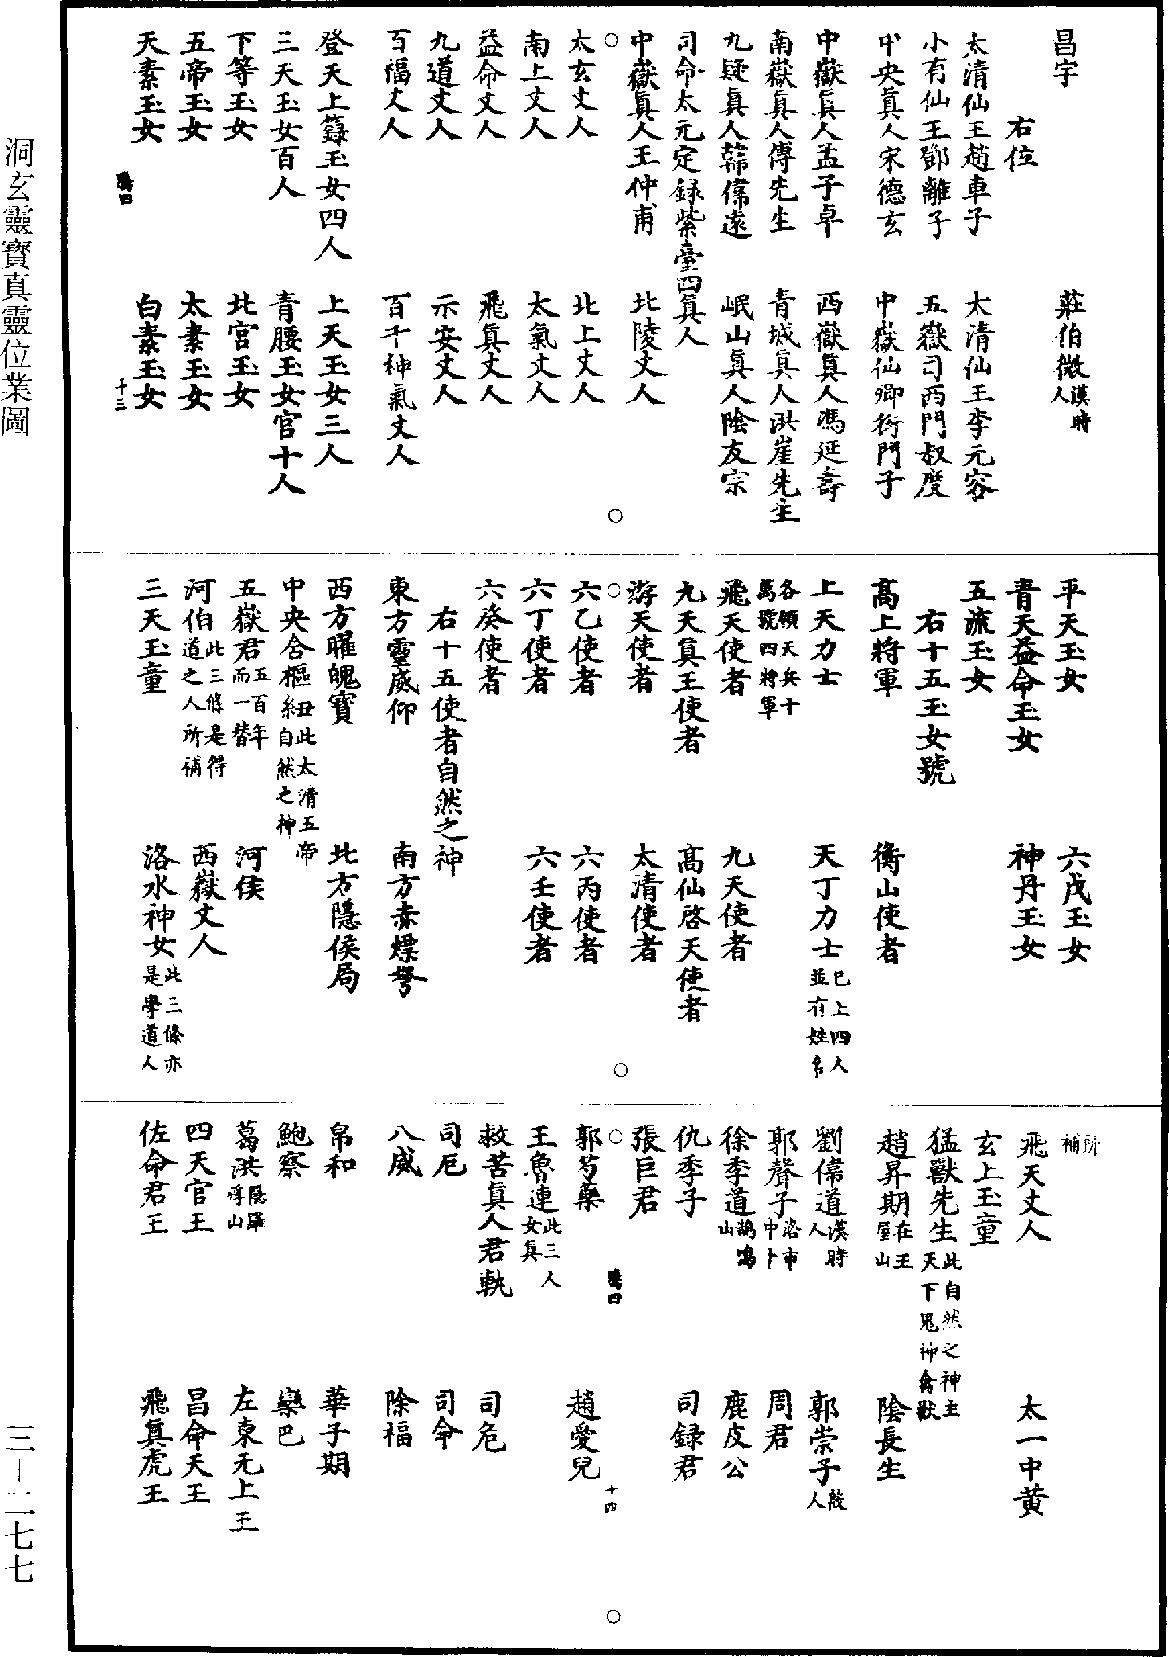 昌宇　莊伯微漢時人
右位
太清仙王趙車子　太清仙王李元容
小有仙王鄧離子　五嶽司西門叔度
中央真人宋德玄　中嶽仙卿衍門子
中嶽真人孟子卓　西嶽真人馮延壽
南嶽真人傅先生　青城真人洪崖先生
九疑真人韓偉遠　岷山真人陰友宗
司命太元定録紫臺四真人
中嶽真人王仲甫　北陵丈人
○　○
太玄丈人　北上丈人
南上丈人　太氣丈人
益命丈人　飛真丈人
九道丈人　示安丈人
百福丈人　百千神氣丈人
登天上籙玉女四人　上天玉女三人
三天玉女百人　青腰玉女官十人
下等玉女　北宮玉女
五帝玉女　太素玉女
天素玉女　白素玉女
十三
平天玉女　六戊玉女
青天益命玉女　神丹玉女
五流玉女
右十五玉女號
高上將軍　衡山使者
上天力士　天丁力士已上四人並有姓名
各領天兵十萬號四將軍
飛天使者　九天使者
九天真王使者　高仙啓天使者
游天使者　太清使者
○　○
六乙使者　六丙使者
六丁使者　六壬使者
六癸使者
右十五使者自然之神
東方靈威仰　南方赤熛弩
西方曜魄寶　北方隱侯局
中央含樞紐此太清五帝自然之神
五嶽君五百年而一替　河侯
河伯此三條是得道之人所補　西嶽丈人
三天玉童　洛水神女此三條亦是學道人
所補
飛天丈人　太一中黄
玄上玉童
猛獸先生此自然之神主天下鬼神禽獸
趙昇期在王屋山　陰長生
劉偉道漢時人　郭崇子殷人
郭聲子洛市中卜　周君
徐季道鵠鳴山　鹿皮公
仇季子　司録君
張巨君
○　十四　○
郭芍藥　趙愛兒
王魯連此三人女真
救苦真人君軌　司危
司厄　司命
八威　除福
帛和　華子期
鮑察　欒巴
葛洪隱羅浮山　左東无上王
四天官王　昌命天王
佐命君王　飛真虎王
洞玄靈寶真靈位業圖
三－二七七